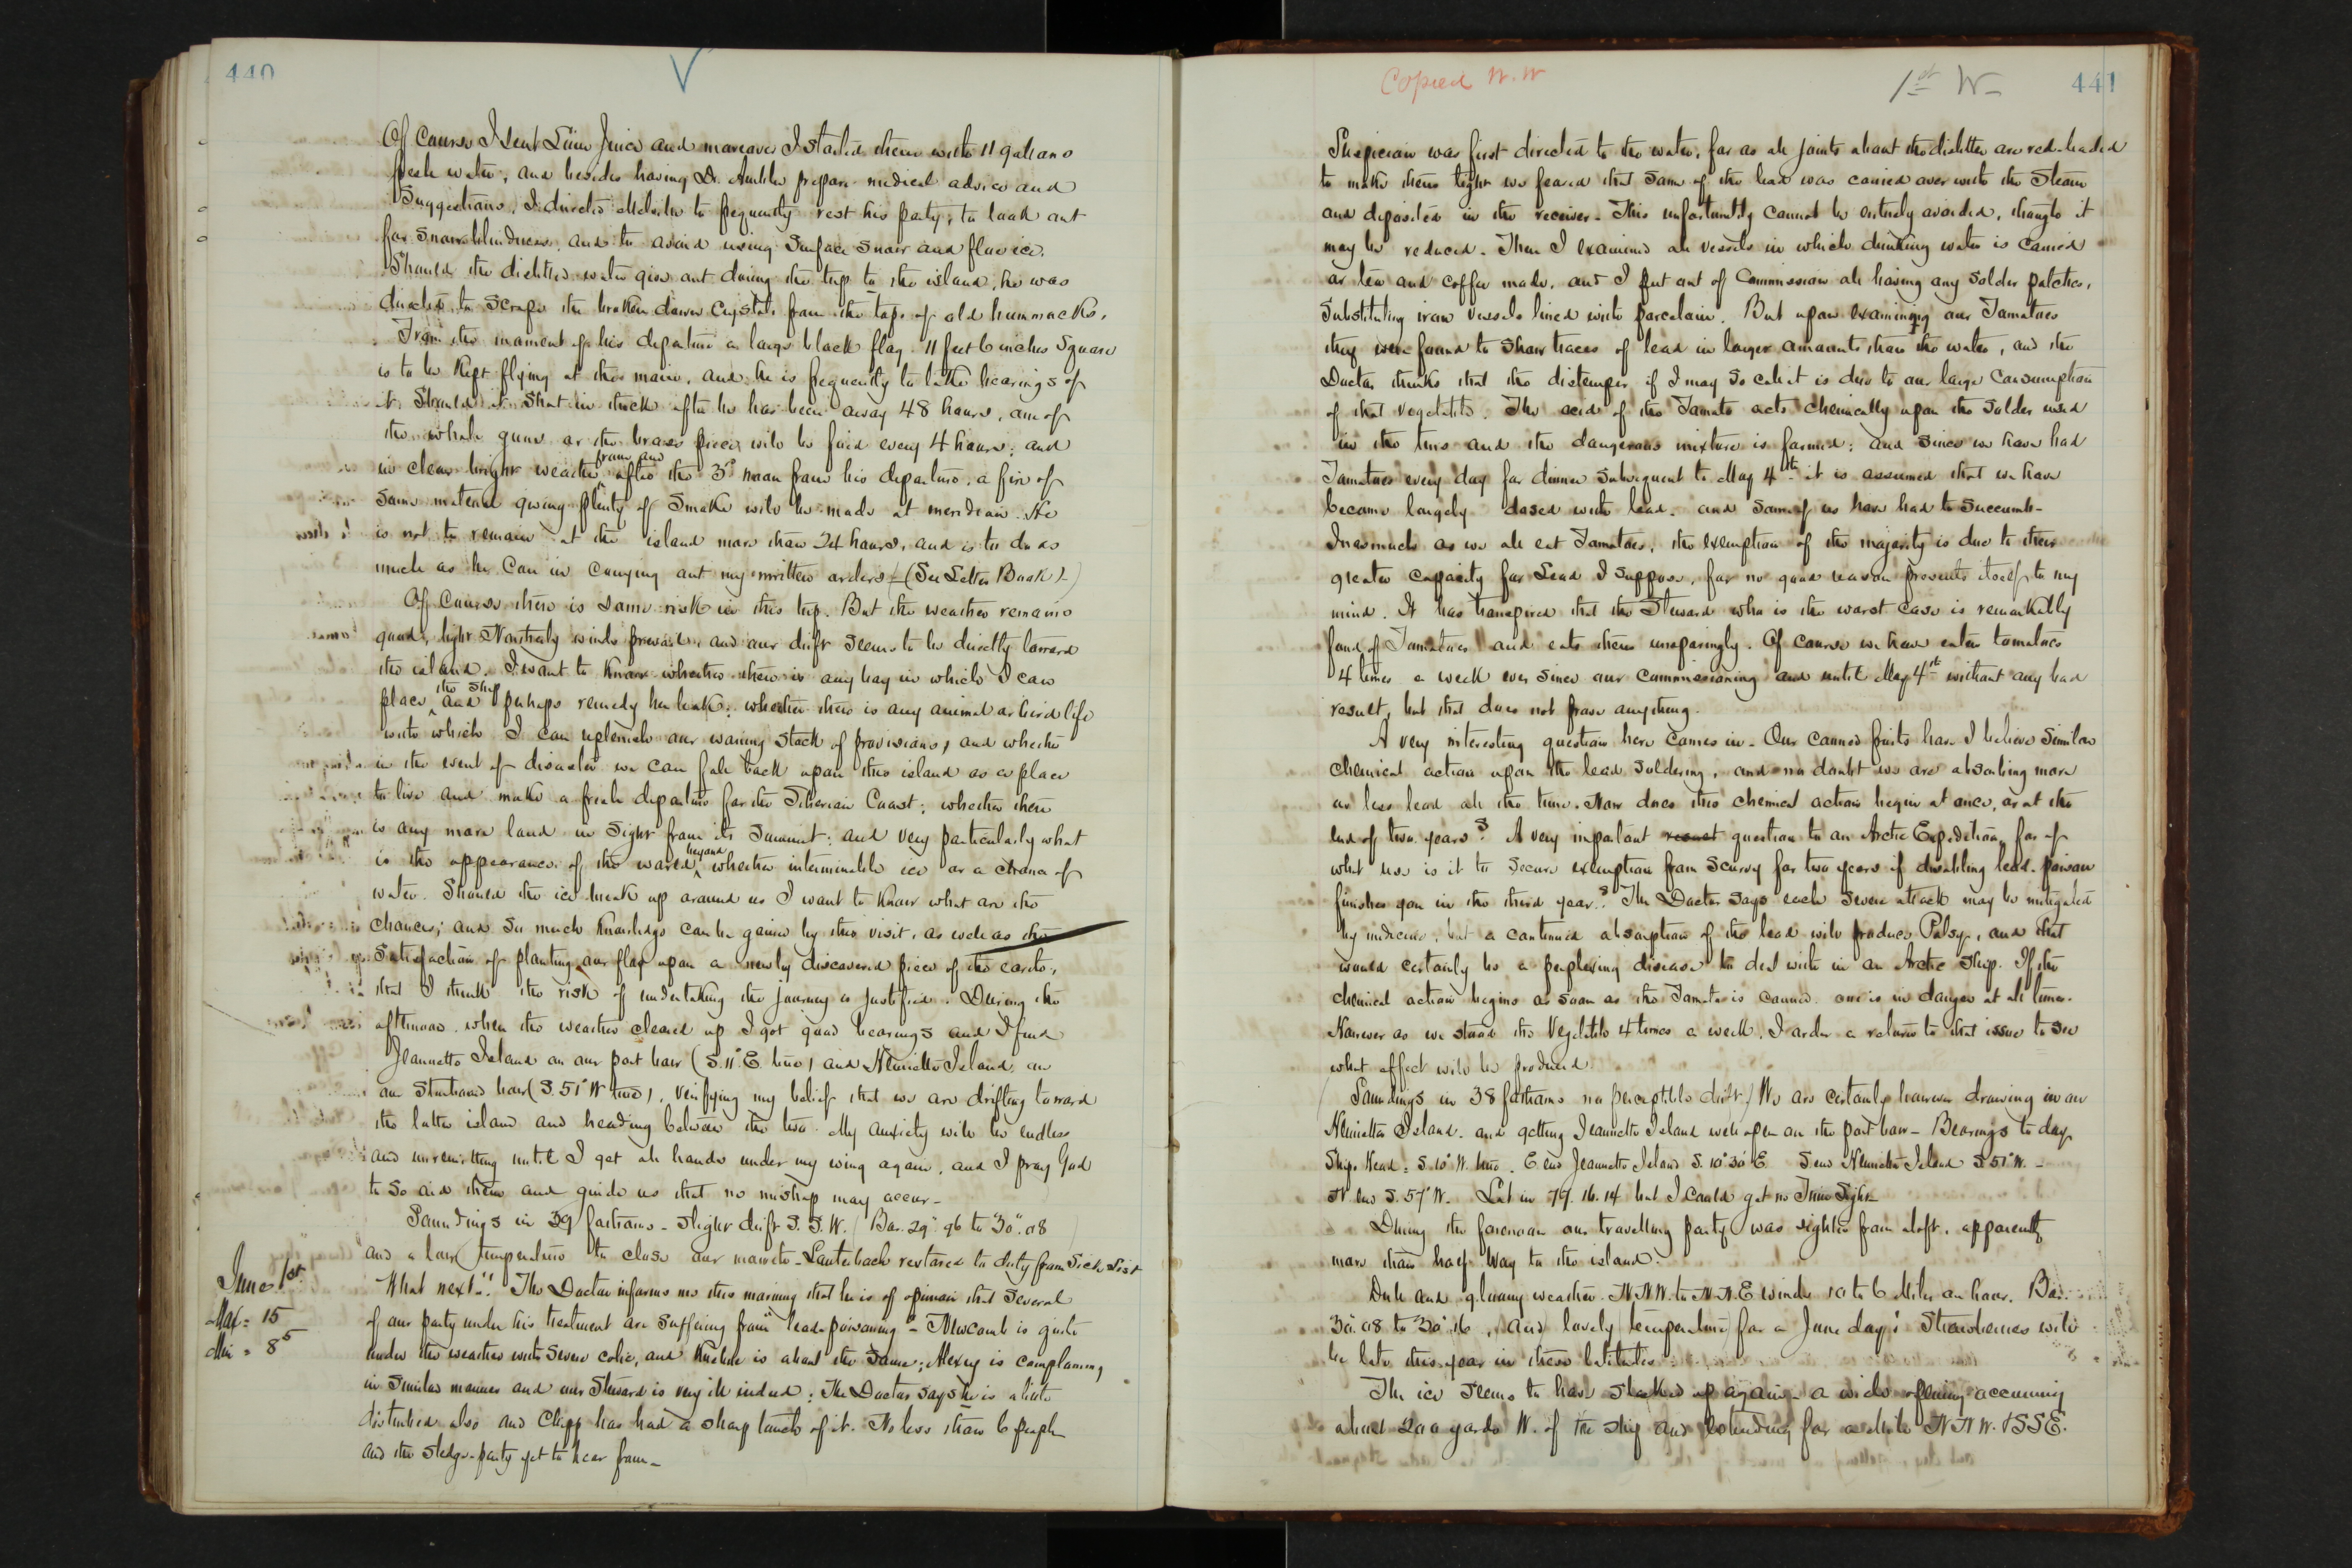 440
Of course I sent Lime Juice and moreover I started them with 11 gallons
fresh water, and besides having Dr. Ambler prepare medical advice and
Suggestions, I directed Melville to frequently rest his party, to look out
for snowblindness, and to avoid using Surface snow and floe ice.
Should the distilled water give out during the trip to the island, he was
directed to scrape the broken down crystals from the tops of old hummocks.
From the moment of his departure a large black flag 11 feet 6 inches Square
is to be Kept flying at the main, and he is frequently to take bearings of
it. Should it shut in thick after he has been away 48 hours, one of
the whale guns or the brass piece will be fired every 4 hours; and
in clear bright weather from and after the 3d noon from his departure, a fire of
some material giving plenty of Smoke will be made at meridian. He
is not to remain at the island more than 24 hours, and is to do as
much as he Can in Carrying out my written orders (See Letter Book)
Of Course there is some risk in this trip. But the weather remains
good, light Northerly winds prevail, and our drift seems to be directly toward
the island. I want to Know whether there is any bay in which I can
place the ship and perhaps remedy her leak; whether there is any animal or bird life
with which I can replenish our waning stock of provisions, and whether
in the event of disaster we can fall back upon this island as a place
to live and make a fresh departure for the Siberian Coast; whether there
is any more land in Sight from its Summit; and very particularly what
is the appearance of the world beyond, whether interminable ice or a chance of
water. Should the ice break up around us I want to Know what are the
chances; and So much Knowledge can be gained by this visit, as well as the
Satisfaction of planting our flag upon a newly discovered piece of the earth,
that I think the risk of undertaking the journey is Justified. During the
afternoon when the weather cleared up I got good bearings and I find
Jeannette Island on our port bow (S. 11° E. true) and Henrietta Island on
our Starboard bow (S. 51° W true), verifying my belief that we are drifting toward
the latter island and heading between the two. My anxiety will be endless
and unremitting until I get all hands under my wing again, and I pray God
to so aid them and guide us that no mishap may occur -
Soundings in 39 fathoms - slight drift S. S. W. / Bar. 29".96 to 30".08
and a low temperature to close our month - Lauterbach restored to duty from Sick List
June 1st
Max = 15
Min = 8.5
What next!! The Doctor informs me this morning that he is of opinion that Several
of our party under his treatment are suffering from "lead-poisoning" - Newcomb is quite
under the weather with Severe colic, and Kuehne is about the Same; Alexey is complaining
in Similar manner and our Steward is very ill indeed; The Doctor says he is a little
disturbed also and Chipp has had a sharp touch of it. No less than 6 people
and the sledge-party yet to hear from -
Copied W. W
1st W -
441
Suspicion was first directed to the water, for as all joints about the distiller are red-leaded
to make them tight we feared that Some of the lead was carried over with the Steam
and deposited in the receiver - This unfortunately cannot be entirely avoided, though it
may be reduced. Then I examined all vessels in which drinking water is Carried
or tea and coffee made, and I put out of Commission all having any Solder patches,
Substituting iron Vessels lined with porcelain. But upon examining our Tomatoes
they were found to Show traces of lead in larger amounts than the water, and the
Doctor thinks that the distemper, if I may so call it is due to our large Consumption
of that vegetable. The acid of the Tomato acts chemically upon the Solder used
in the tins and the dangerous mixture is formed; and Since we have had
Tomatoes every day for dinner Subsequent to May 4th it is assumed that we have
become largely dosed with lead, and Some of us have had to Succumb -
Inasmuch as we all eat Tomatoes, the exemption of the majority is due to their
greater capacity for Lead I suppose, for no good reason presents itself to my
mind. It has transpired that the Steward who is the worst Case is remarkably
fond of Tomatoes and eats them unsparingly. Of course we have eaten tomatoes
4 times a week ever since our commissioning and until May 4th without any bad
result, but that does not prove anything.
A very interesting question here comes in - Our Canned fruits have I believe Similar
chemical action upon the lead soldering, and no doubt we are absorbing more
or less lead all the time. Now does this chemical action begin at once, or at the
end of two years? A very important question to an Arctic Expedition, for of
what use is it to Secure exemption from Scurvy for two years if disabling lead-poison
finishes you in the third year? The Doctor Says each Severe attack may be mitigated
by medicine, but a continued absorption of the lead will produce Palsy, and that
would certainly be a perplexing disease to deal with in an Arctic Ship. If the
chemical action begins as Soon as the Tomato is Canned, one is in danger at all times.
However as we stood the Vegetable 4 times a week, I order a return to that issue to See
what effect will be produced.
(Soundings in 38 fathoms no perceptible drift.) We are certainly however drawing in on
Henrietta Island, and getting Jeannette Island well open on the port bow - Bearings to day
Ships Head = S. 10° W. true. E. end Jeannette Island S. 10° 30' E. S. end Henrietta Island S. 51° W. -
N. end S. 57° W. Lat in 77. 16. 14 but I could get no Time Sight -
During the forenoon our travelling party was sighted from aloft, apparently
more than half way to the island.
Dull and gloomy weather. N. N. W. to N. N. E winds 10 to 6 Miles an hour. Bar.
30".08 to 30".16, and lovely temperature for a June day! Strawberries will
be late this year in these latitudes.
The ice seems to have slacked up again a wide opening occurring
about 200 yards W. of the ship and extending for a mile N N W. & S S E.